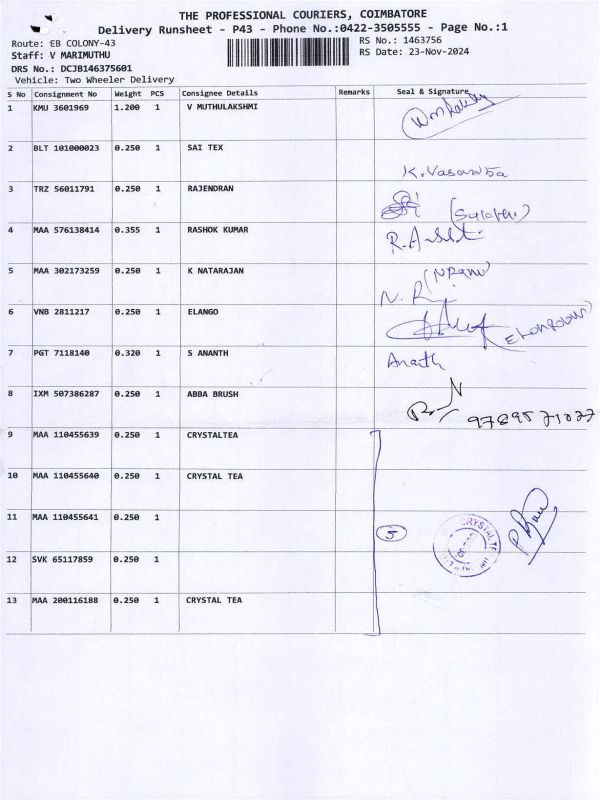 THE PROFESSIONAL COURIERS, COIMBATORE
Delivery Runsheet - P43 - Phone No.:0422-3505555 - Page No.:1
Route: EB COLONY-43
RS No.: 1463756
Staff: V MARIMUTHU
RS Date: 23-Nov-2024
DRS No.: DCJB146375601
Vehicle: Two Wheeler Delivery
S No Consignment No Weight PCS Consignee Details Remarks Seal & Signature
1 KMU 3601969 1.200 1 V MUTHULAKSHMI
2 BLT 101000023 0.250 1 SAI TEX
K. Vasantha
3 TRZ 56011791 0.250 1 RAJENDRAN
4 MAA 576138414 0.355 1 RASHOK KUMAR
5 MAA 302173259 0.250 1 K NATARAJAN
6 VNB 2811217 0.250 1 ELANGO
7 PGT 7118140 0.320 1 S ANANTH Ananth
8 IXM 507386287 0.250 1 ABBA BRUSH
9 MAA 110455639 0.250 1 CRYSTALTEA
10 MAA 110455640 0.250 1 CRYSTAL TEA
11 MAA 110455641 0.250 1
5
12 SVK 65117859 0.250 1
13 MAA 200116188 0.250 1 CRYSTAL TEA